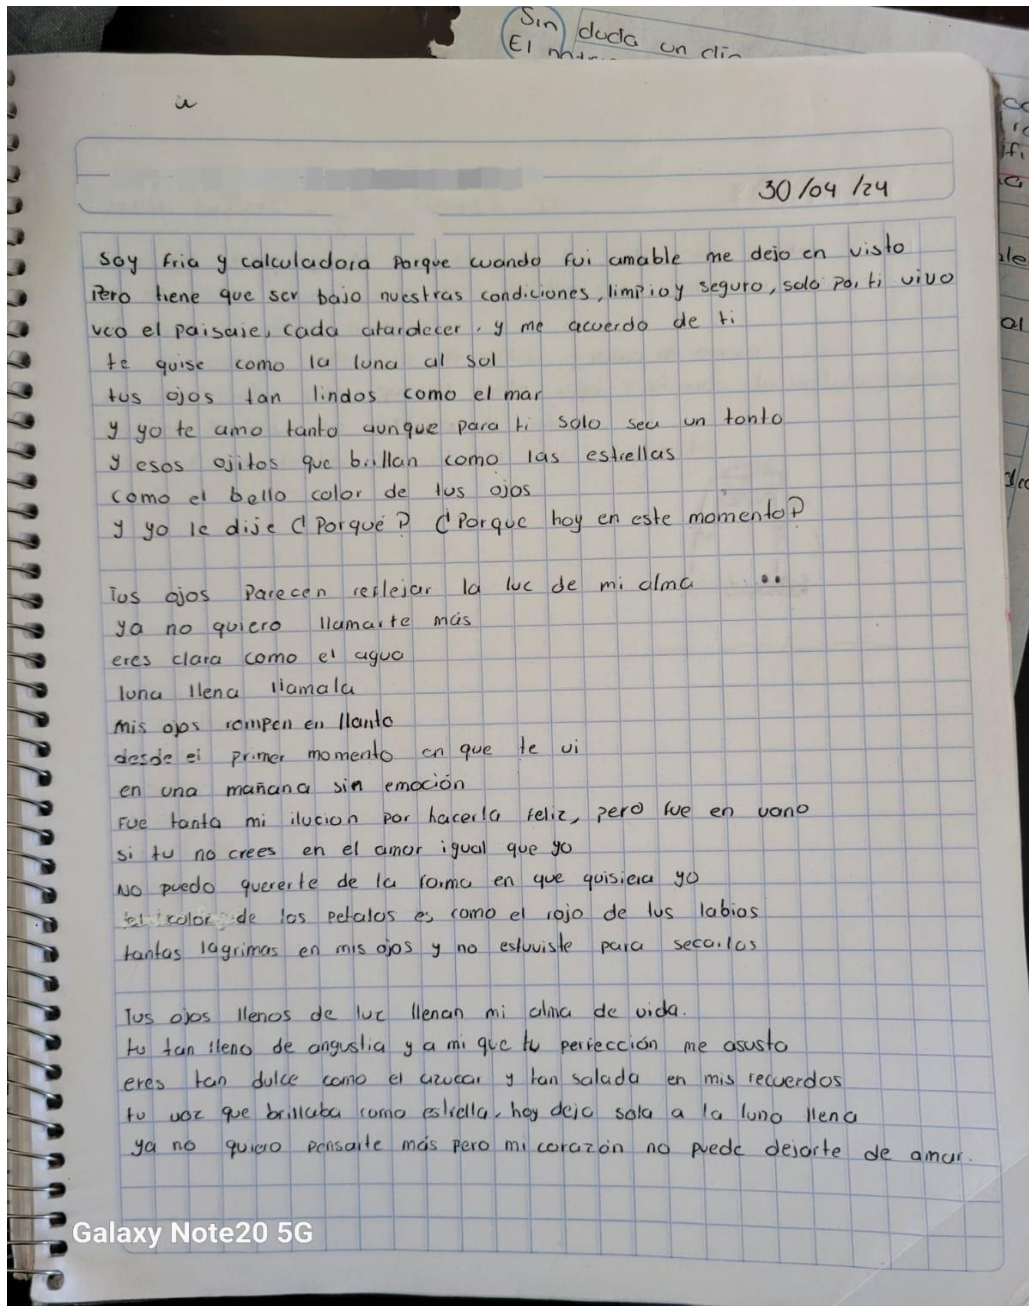 Sin duda un día
El
30/04/24
Soy fria y calculadora Porque cuando fui amable me dejo en visto
Pero tiene que ser bajo nuestras condiciones, limpio y seguro, solo por ti vivo
veo el paisaje, cada atardecer, y me acuerdo de ti
te quise como la luna al sol
tus ojos tan lindos como el mar
y yo te amo tanto aunque para ti solo sea un tonto
y esos ojitos que brillan como las estrellas
como el bello color de tus ojos
y yo le dije ¿Porqué? ¿Porque hoy en este momento?
Tus ojos Parecen reflejar la luc de mi alma
ya no quiero llamarte más
eres clara como el agua
luna llena llamala
Mis ojos rompen en llanto
desde el primer momento en que te vi
en una mañana sin emoción
Fue tanta mi ilucion por hacerla feliz, pero fue en vano
si tu no crees en el amor igual que yo
No puedo quererte de la forma en que quisiera yo
el color de los petalos es como el rojo de tus labios
tantas lagrimas en mis ojos y no estuviste para secarlas
Tus ojos llenos de luz llenan mi alma de vida.
tu tan lleno de angustia y a mi que tu perfección me asusta
eres tan dulce como el azucar y tan salada en mis recuerdos
tu voz que brillaba como estrella, hoy deja sola a la luna llena
ya no quiero pensarte más pero mi corazón no puede dejarte de amar.
Galaxy Note20 5G